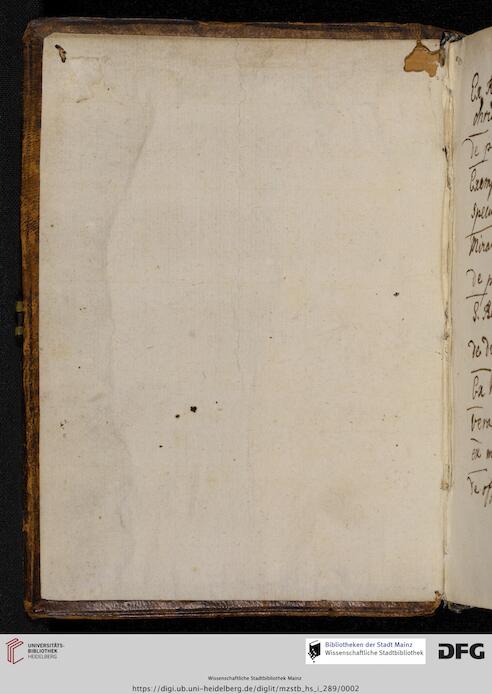 Ex
De p
Exemp
specu
Miran
De p
S. Au
de De
Ex
Vera
ex m
De op
UNIVERSITÄTS-
BIBLIOTHEK
HEIDELBERG
Bibliotheken der Stadt Mainz
Wissenschaftliche Stadtbibliothek
DFG
Wissenschaftliche Stadtbibliothek Mainz
https://digi.ub.uni-heidelberg.de/diglit/mzstb_hs_i_289/0002